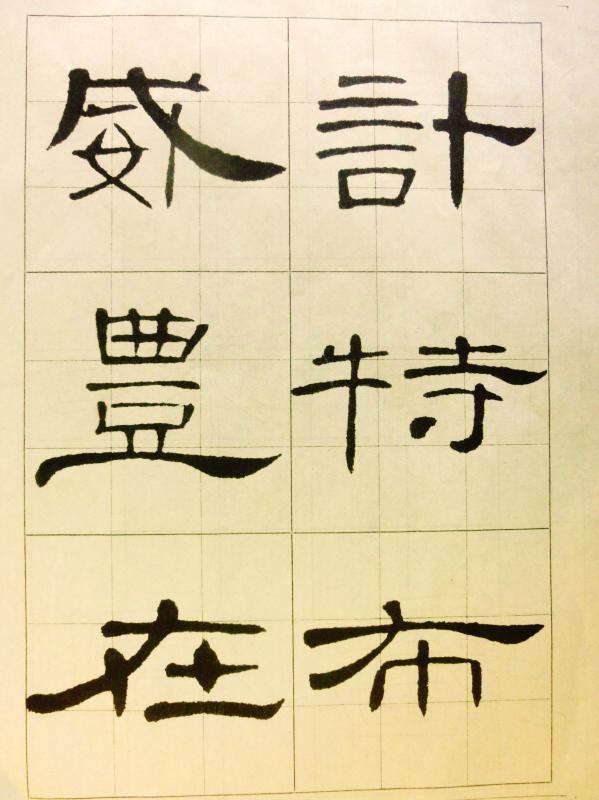 計特布
威豊在